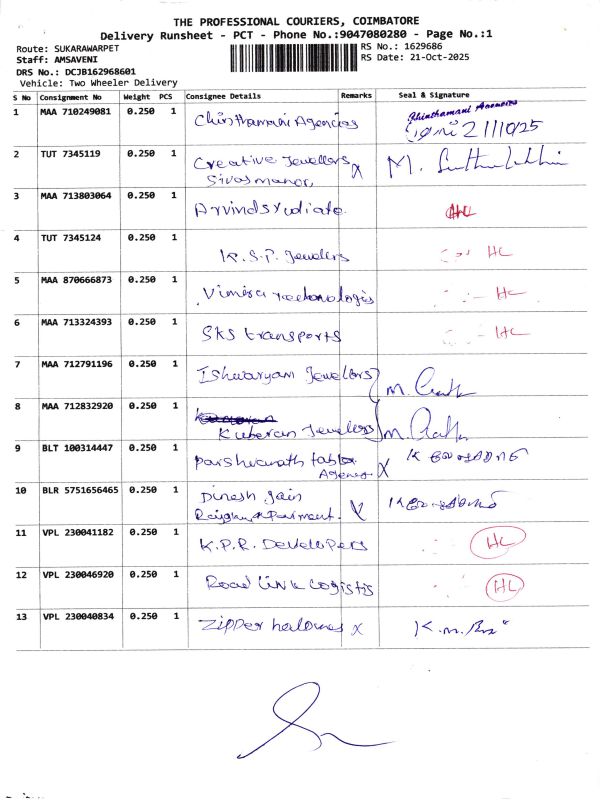 THE PROFESSIONAL COURIERS, COIMBATORE
Delivery Runsheet - PCT - Phone No.:9047080280 - Page No.:1
Route: SUKARAWARPET
RS No.: 1629686
Staff: AMSAVENI
RS Date: 21-Oct-2025
DRS No.: DCJB162968601
Vehicle: Two Wheeler Delivery
S No Consignment No Weight PCS Consignee Details Remarks Seal & Signature
1 MAA 710249081 0.250 1 Chinthamani Agencies 21/10/25
2 TUT 7345119 0.250 1 Creative Jewellers X M.
Sivas manor,
3 MAA 713803064 0.250 1 HL
4 TUT 7345124 0.250 1 K.S.P. Jewelers HL
5 MAA 870666873 0.250 1 HL
6 MAA 713324393 0.250 1 SKS transports HL
7 MAA 712791196 0.250 1 Ishwaryam Jewellers M.
8 MAA 712832920 0.250 1
Kuberan Jewellers M.
9 BLT 100314447 0.250 1 Parshwanath X K
Agency
10 BLR 5751656465 0.250 1 Dinesh Jain
X
11 VPL 230041182 0.250 1 K.P.R. Developers HL
12 VPL 230046920 0.250 1 Road Link Logistis HL
13 VPL 230040834 0.250 1 Zipper X K.M.